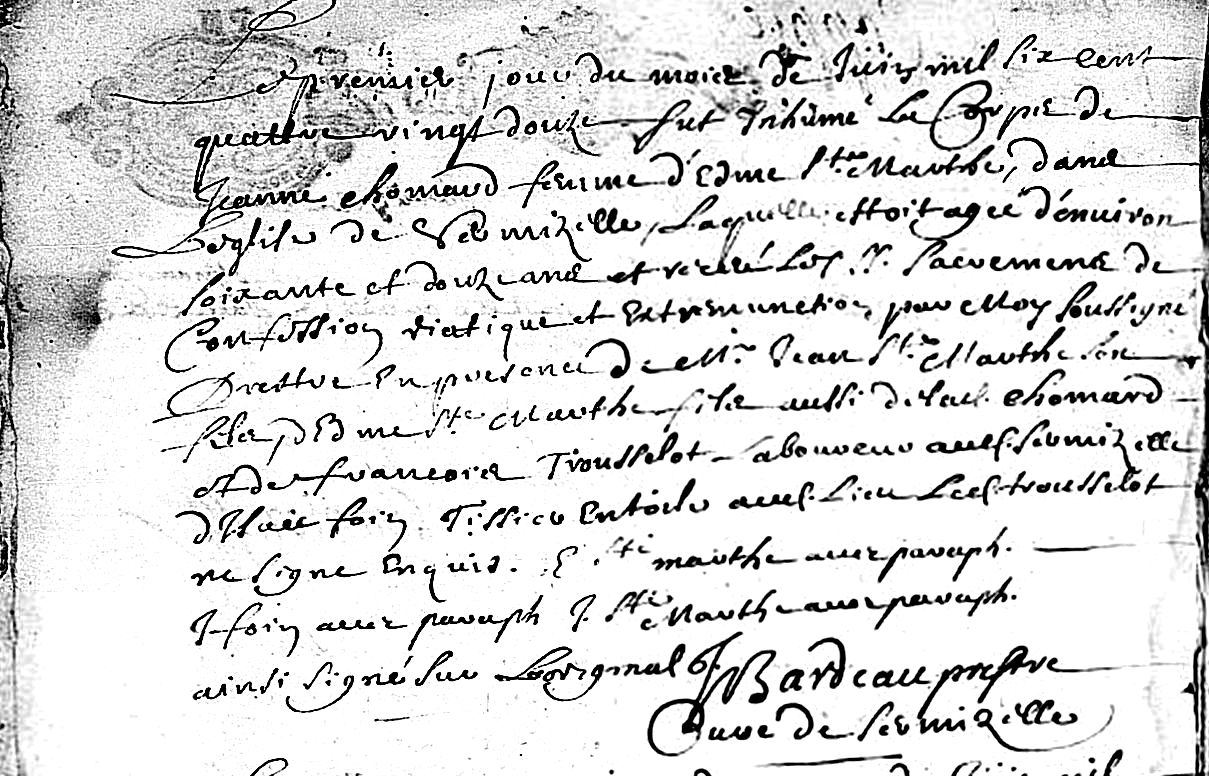 Le premier jour du mois de Juin mil six cent
quattre vingt douze fut Inhumé Le Corps de
Jeanne chomard femme d'Edme Ste Marthe, dans
L'eglise de Sermizelle, Laquelle estoit agée d'enuiron
soixante et douze ans et receu Les Sts. sacremens de
Confession viatique et Extremunction, par Moy soussigné
Prestre En presence de Mr. Jean Ste Marthe son
fils, d'Edme Ste Marthe fils aussi de lad. chomard
et de francois Trousselot Laboureur aud. sermizelle
foin Tissier En toile aud. Lieu Led. trousselot
ne signe Enquis. E Ste marthe auec paraph.
J foin auec paraph J. Ste Marthe auec paraph.
ainsi signé sur Loriginal
Bardeau prestre
Curé de Sermizelle